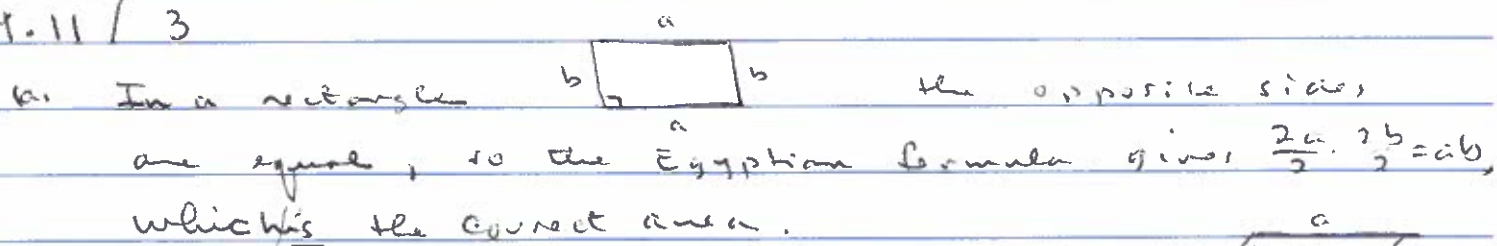 1.11 / 3
a
a. In a rectangle b b the opposite sides
a
are equal, so the Egyptian formula gives 2a/2 · 2b/2 = ab,
which is the correct area.
a